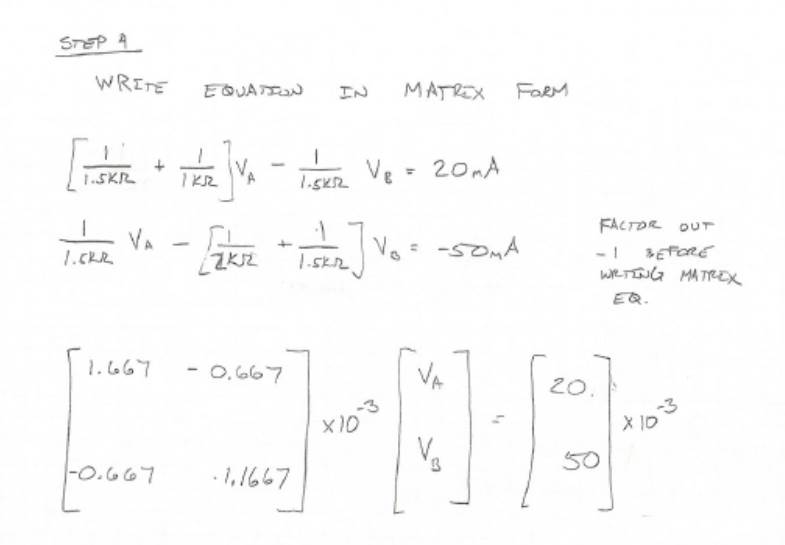 STEP 4
WRITE EQUATION IN MATRIX FORM
[1/1.5KΩ + 1/1KΩ]V_A - 1/1.5KΩ V_B = 20mA
1/1.5KΩ V_A - [1/2KΩ + 1/1.5KΩ] V_B = -50mA
FACTOR OUT
-1 BEFORE
WRITING MATRIX
EQ.
[1.667 - 0.667
-0.667 1.1667] x10^-3 [V_A
V_B] = [20.
50] x10^-3